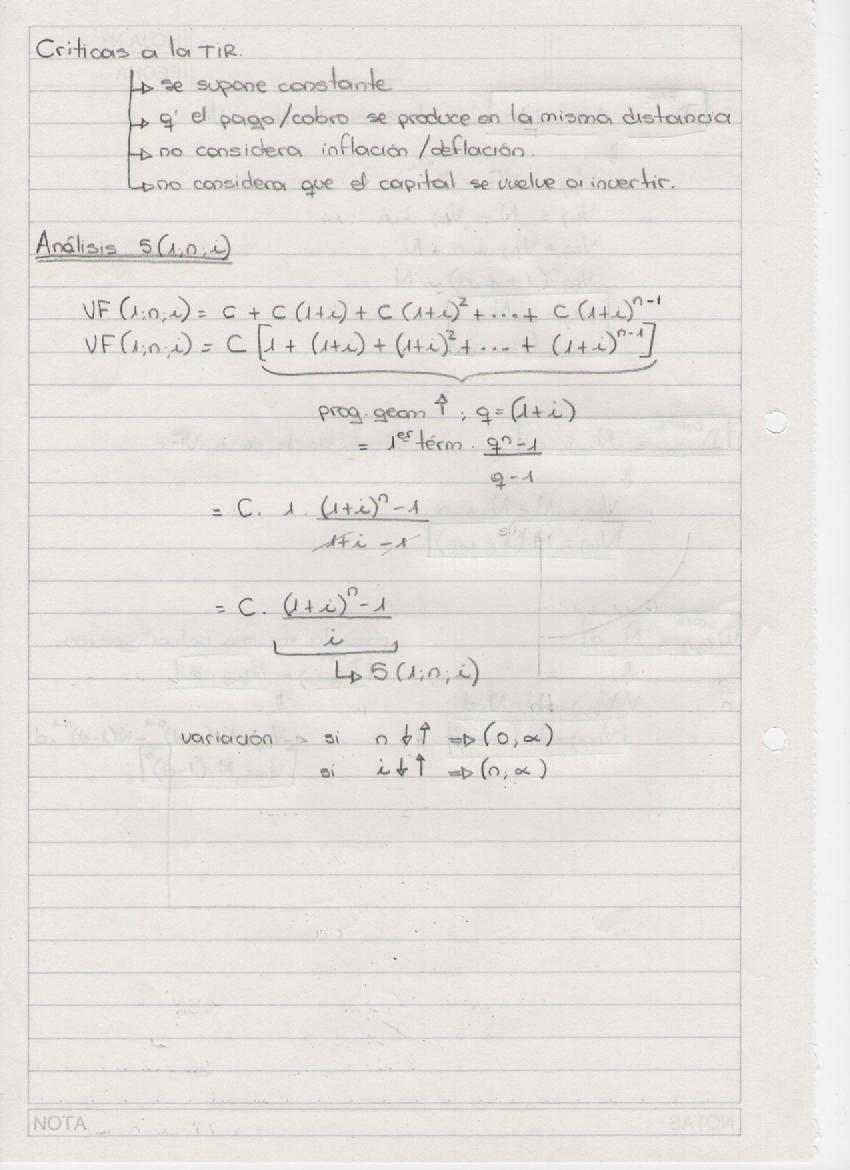 Criticas a la TIR.
↳ se supone constante
↳ q' el pago/cobro se produce en la misma distancia
↳ no considera inflación/deflación.
↳ no considera que el capital se vuelve a invertir.
Análisis S(1;n;i)
VF(1;n;i) = C + C(1+i) + C(1+i)² + ... + C(1+i)ⁿ⁻¹
VF(1;n;i) = C [1 + (1+i) + (1+i)² + ... + (1+i)ⁿ⁻¹]
prog. geom ↑ ; q = (1+i)
= 1er térm. qⁿ-1
q-1
= C. 1. (1+i)ⁿ-1
1+i -1
= C. (1+i)ⁿ-1
i
↳ S(1;n;i)
variación si n↓↑ ⇒ (0,∝)
si i↓↑ ⇒ (n,∝)
NOTA